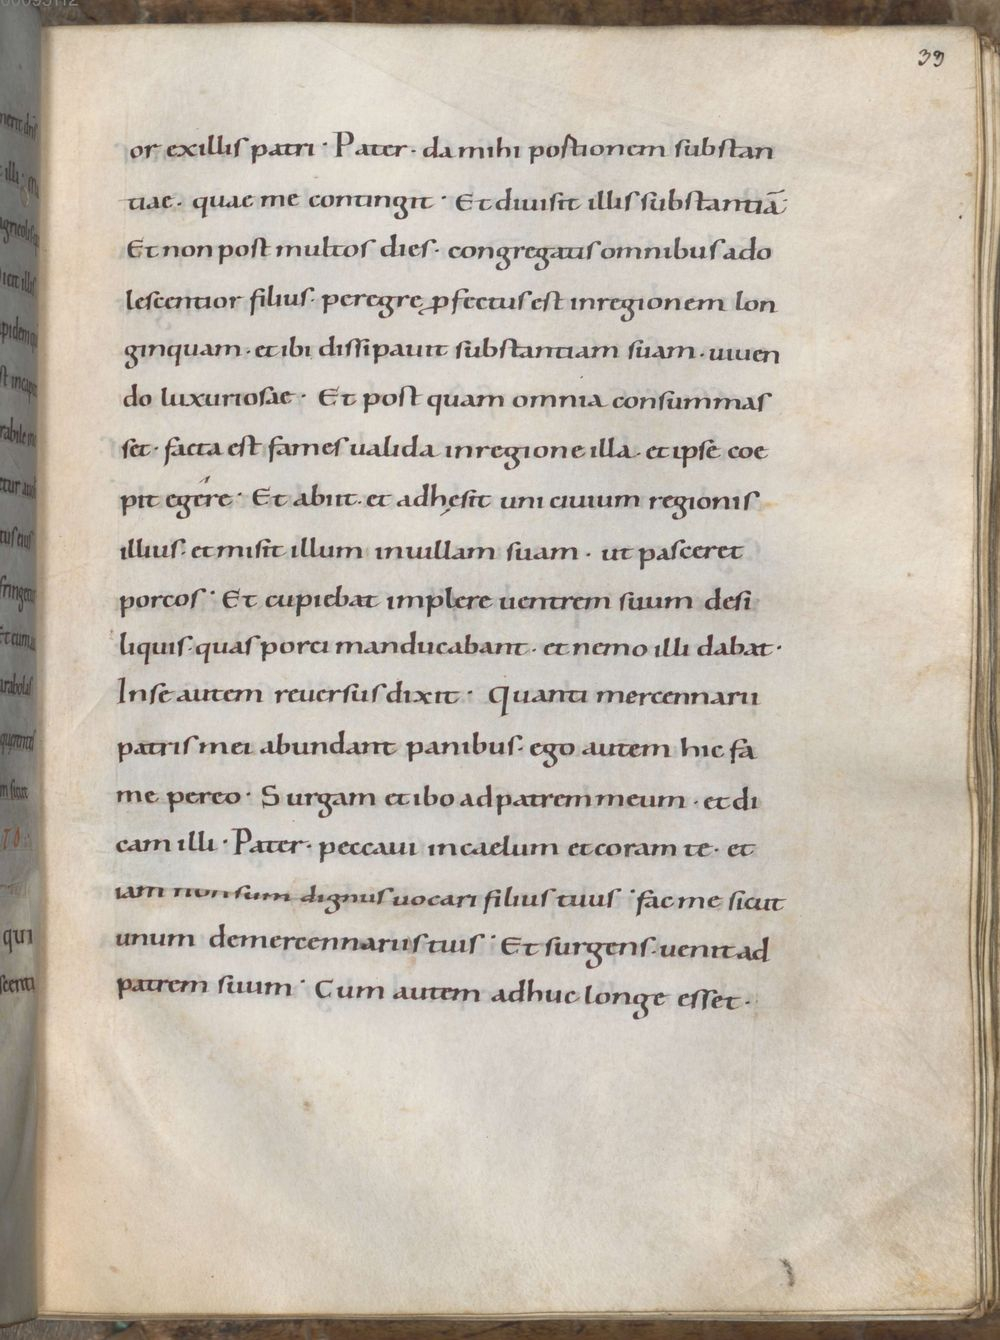 33
or exillis patri · Pater · da mihi portionem substan
tiae · quae me contingit · Et diuisit illis substantiā
Et non post multos dies · congregatis omnibus ado
lescentior filius · peregre ꝓfectus est inregionem lon
ginquam · et ibi dissipauit substantiam suam · uiuen
do luxuriosae · Et post quam omnia consummas
set · facta est fames ualida inregione illa · et ipse coe
pit egere · Et abiit · et adhęsit uni ciuium regionis
illius · et misit illum inuillam suam · ut pasceret
porcos · Et cupiebat implere uentrem suum desi
liquis · quas porci manducabant · et nemo illi dabat ·
Inse autem reuersus dixit · Quanti mercennarii
patris mei abundant panibus · ego autem hic fa
me pereo · Surgam et ibo ad patrem meum · et di
cam illi · Pater · peccaui incaelum et coram te · et
iam non sum dignus uocari filius tuus · fac me sicut
unum demercennariis tuis · Et surgens · uenit ad
patrem suum · Cum autem adhuc longe esset ·